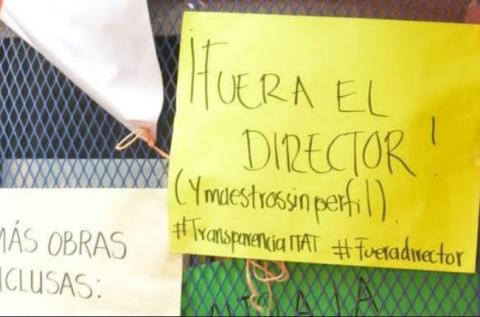 ¡FUERA EL
DIRECTOR!
(Y maestros sin perfil).
#TransparenciaITAT #Fueradirector
MÁS OBRAS
CLUSAS: